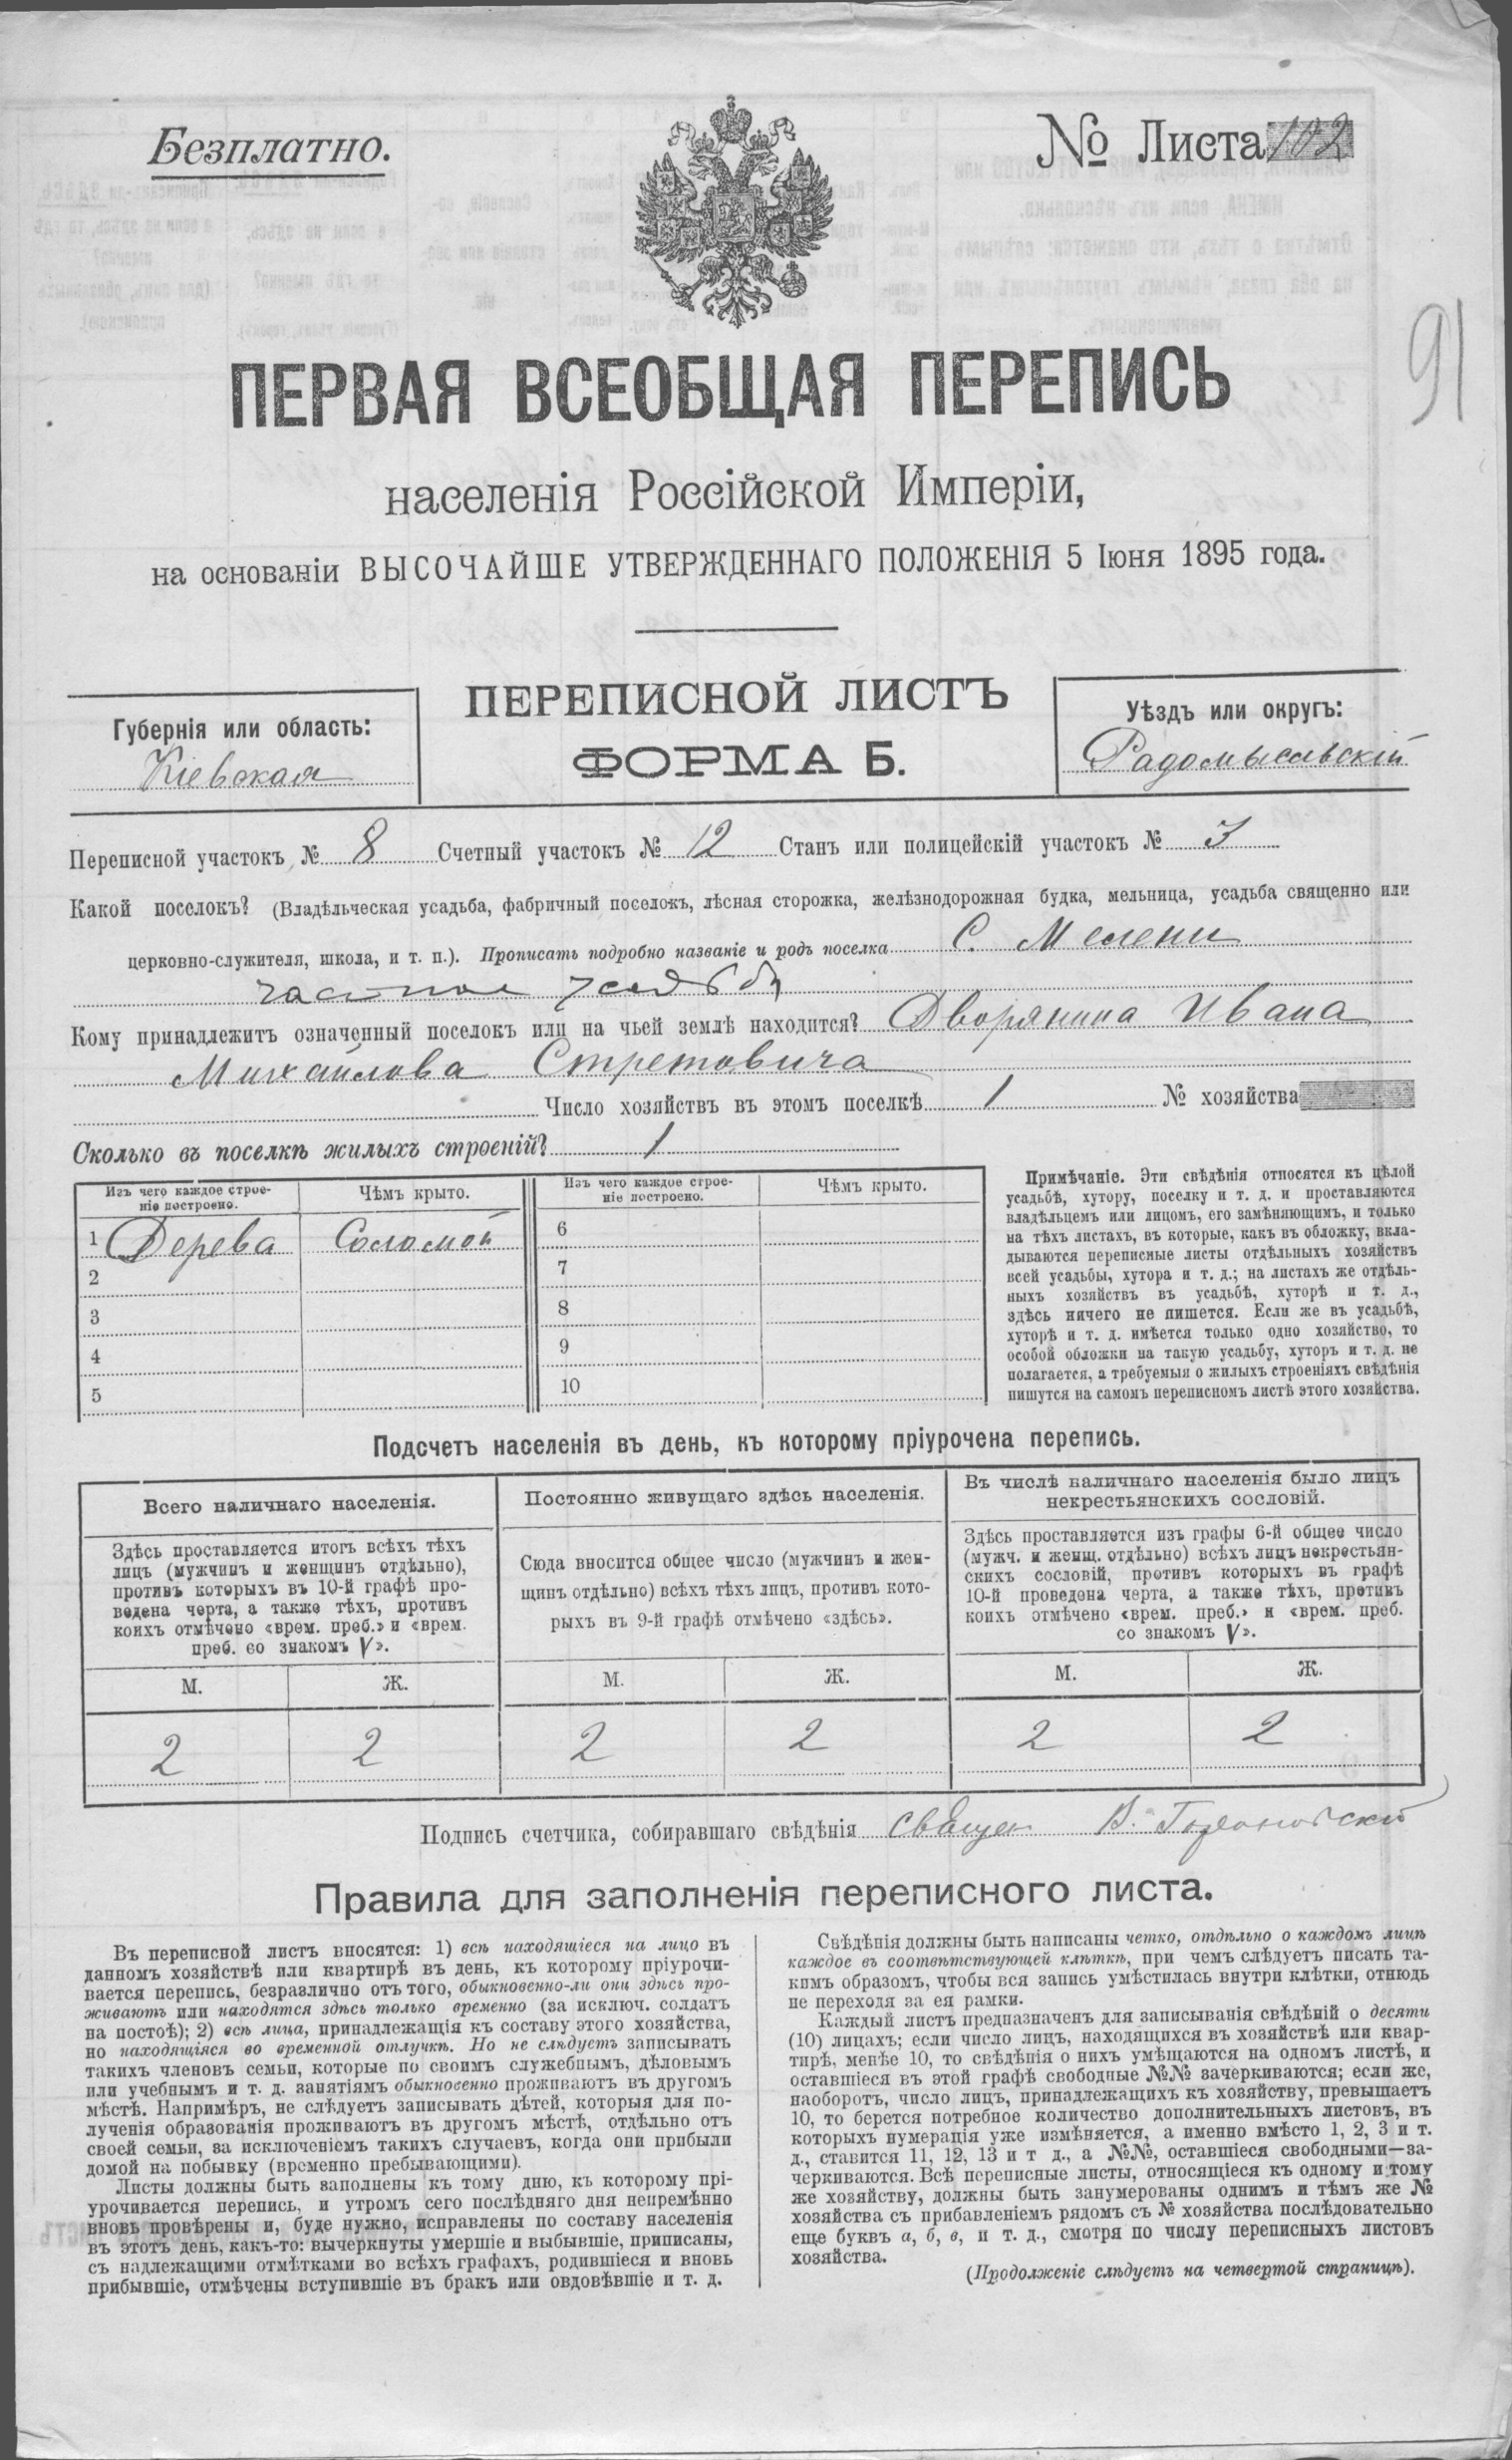 Безплатно.
№ Листа 102
91
ПЕРВАЯ ВСЕОБЩАЯ ПЕРЕПИСЬ
населенія Россійской Имперіи,
на основаніи ВЫСОЧАЙШЕ УТВЕРЖДЕННАГО ПОЛОЖЕНІЯ 5 Іюня 1895 года.
ПЕРЕПИСНОЙ ЛИСТЪ
ФОРМА Б.
Губернія или область:
Кіевская
Уѣздъ или округъ:
Радомысльскій
Переписной участокъ № 8 Счетный участокъ № 12 Станъ или полицейскій участокъ № 3
Какой поселокъ? (Владѣльческая усадьба, фабричный поселокъ, лѣсная сторожка, желѣзнодорожная будка, мельница, усадьба священно или
церковно-служителя, школа, и т. п.). Прописать подробно названіе и родъ поселка С. Мелени
частная усадьба
Кому принадлежитъ означенный поселокъ или на чьей землѣ находится? Дворянина Ивана
Михайлова Стретовича
Число хозяйствъ въ этомъ поселкѣ 1 № хозяйства
Сколько въ поселкѣ жилыхъ строеній? 1
Изъ чего каждое строе-
ніе построено.
Чѣмъ крыто.
Изъ чего каждое строе-
ніе построено.
Чѣмъ крыто.
1 Дерева Соломой 6
2 7
3 8
4 9
5 10
Примѣчаніе. Эти свѣдѣнія относятся къ цѣлой
усадьбѣ, хутору, поселку и т. д. и проставляются
владѣльцемъ или лицомъ, его замѣняющимъ, и только
на тѣхъ листахъ, въ которые, какъ въ обложку, вкла-
дываются переписные листы отдѣльныхъ хозяйствъ
всей усадьбы, хутора и т. д.; на листахъ же отдѣль-
ныхъ хозяйствъ въ усадьбѣ, хуторѣ и т. д.,
здѣсь ничего не пишется. Если же въ усадьбѣ,
хуторѣ и т. д. имѣется только одно хозяйство, то
особой обложки на такую усадьбу, хуторъ и т. д. не
полагается, а требуемыя о жилыхъ строеніяхъ свѣдѣнія
пишутся на самомъ переписномъ листѣ этого хозяйства.
Подсчетъ населенія въ день, къ которому пріурочена перепись.
Всего наличнаго населенія.
Здѣсь проставляется итогъ всѣхъ тѣхъ
лицъ (мужчинъ и женщинъ отдѣльно),
противъ которыхъ въ 10-й графѣ про-
ведена черта, а также тѣхъ, противъ
коихъ отмѣчено «врем. преб.» и «врем.
преб. со знакомъ V».
Постоянно живущаго здѣсь населенія.
Сюда вносится общее число (мужчинъ и жен-
щинъ отдѣльно) всѣхъ тѣхъ лицъ, противъ кото-
рыхъ въ 9-й графѣ отмѣчено «здѣсь».
Въ числѣ наличнаго населенія было лицъ
некрестьянскихъ сословій.
Здѣсь проставляется изъ графы 6-й общее число
(мужч. и женщ. отдѣльно) всѣхъ лицъ некрестьян-
скихъ сословій, противъ которыхъ въ графѣ
10-й проведена черта, а также тѣхъ, противъ
коихъ отмѣчено «врем. преб.» и «врем. преб.
со знакомъ V».
М. Ж. М. Ж. М. Ж.
2 2 2 2 2 2
Подпись счетчика, собиравшаго свѣдѣнія Священ В.
Правила для заполненія переписного листа.
Въ переписной листъ вносятся: 1) всѣ находящіеся на лицо въ
данномъ хозяйствѣ или квартирѣ въ день, къ которому пріурочи-
вается перепись, безразлично отъ того, обыкновенно-ли они здѣсь про-
живаютъ или находятся здѣсь только временно (за исключ. солдатъ
на постоѣ); 2) всѣ лица, принадлежащія къ составу этого хозяйства,
но находящіяся во временной отлучкѣ. Но не слѣдуетъ записывать
такихъ членовъ семьи, которые по своимъ служебнымъ, дѣловымъ
или учебнымъ и т. д. занятіямъ обыкновенно проживаютъ въ другомъ
мѣстѣ. Напримѣръ, не слѣдуетъ записывать дѣтей, которыя для по-
лученія образованія проживаютъ въ другомъ мѣстѣ, отдѣльно отъ
своей семьи, за исключеніемъ такихъ случаевъ, когда они прибыли
домой на побывку (временно пребывающими).
Листы должны быть заполнены къ тому дню, къ которому прі-
урочивается перепись, и утромъ сего послѣдняго дня непремѣнно
вновь провѣрены и, буде нужно, исправлены по составу населенія
въ этотъ день, какъ-то: вычеркнуты умершіе и выбывшіе, приписаны,
съ надлежащими отмѣтками во всѣхъ графахъ, родившіеся и вновь
прибывшіе, отмѣчены вступившіе въ бракъ или овдовѣвшіе и т. д.
Свѣдѣнія должны быть написаны четко, отдѣльно о каждомъ лицѣ
каждое въ соотвѣтствующей клѣткѣ, при чемъ слѣдуетъ писать та-
кимъ образомъ, чтобы вся запись умѣстилась внутри клѣтки, отнюдь
не переходя за ея рамки.
Каждый листъ предназначенъ для записыванія свѣдѣній о десяти
(10) лицахъ; если число лицъ, находящихся въ хозяйствѣ или квар-
тирѣ, менѣе 10, то свѣдѣнія о нихъ умѣщаются на одномъ листѣ, и
оставшіеся въ этой графѣ свободные №№ зачеркиваются; если же,
наоборотъ, число лицъ, принадлежащихъ къ хозяйству, превышаетъ
10, то берется потребное количество дополнительныхъ листовъ, въ
которыхъ нумерація уже измѣняется, а именно вмѣсто 1, 2, 3 и т.
д., ставится 11, 12, 13 и т д., а №№, оставшіеся свободными—за-
черкиваются. Всѣ переписные листы, относящіеся къ одному и тому
же хозяйству, должны быть занумерованы однимъ и тѣмъ же №
хозяйства съ прибавленіемъ рядомъ съ № хозяйства послѣдовательно
еще буквъ а, б, в, и т. д., смотря по числу переписныхъ листовъ
хозяйства.
(Продолженіе слѣдуетъ на четвертой страницѣ).